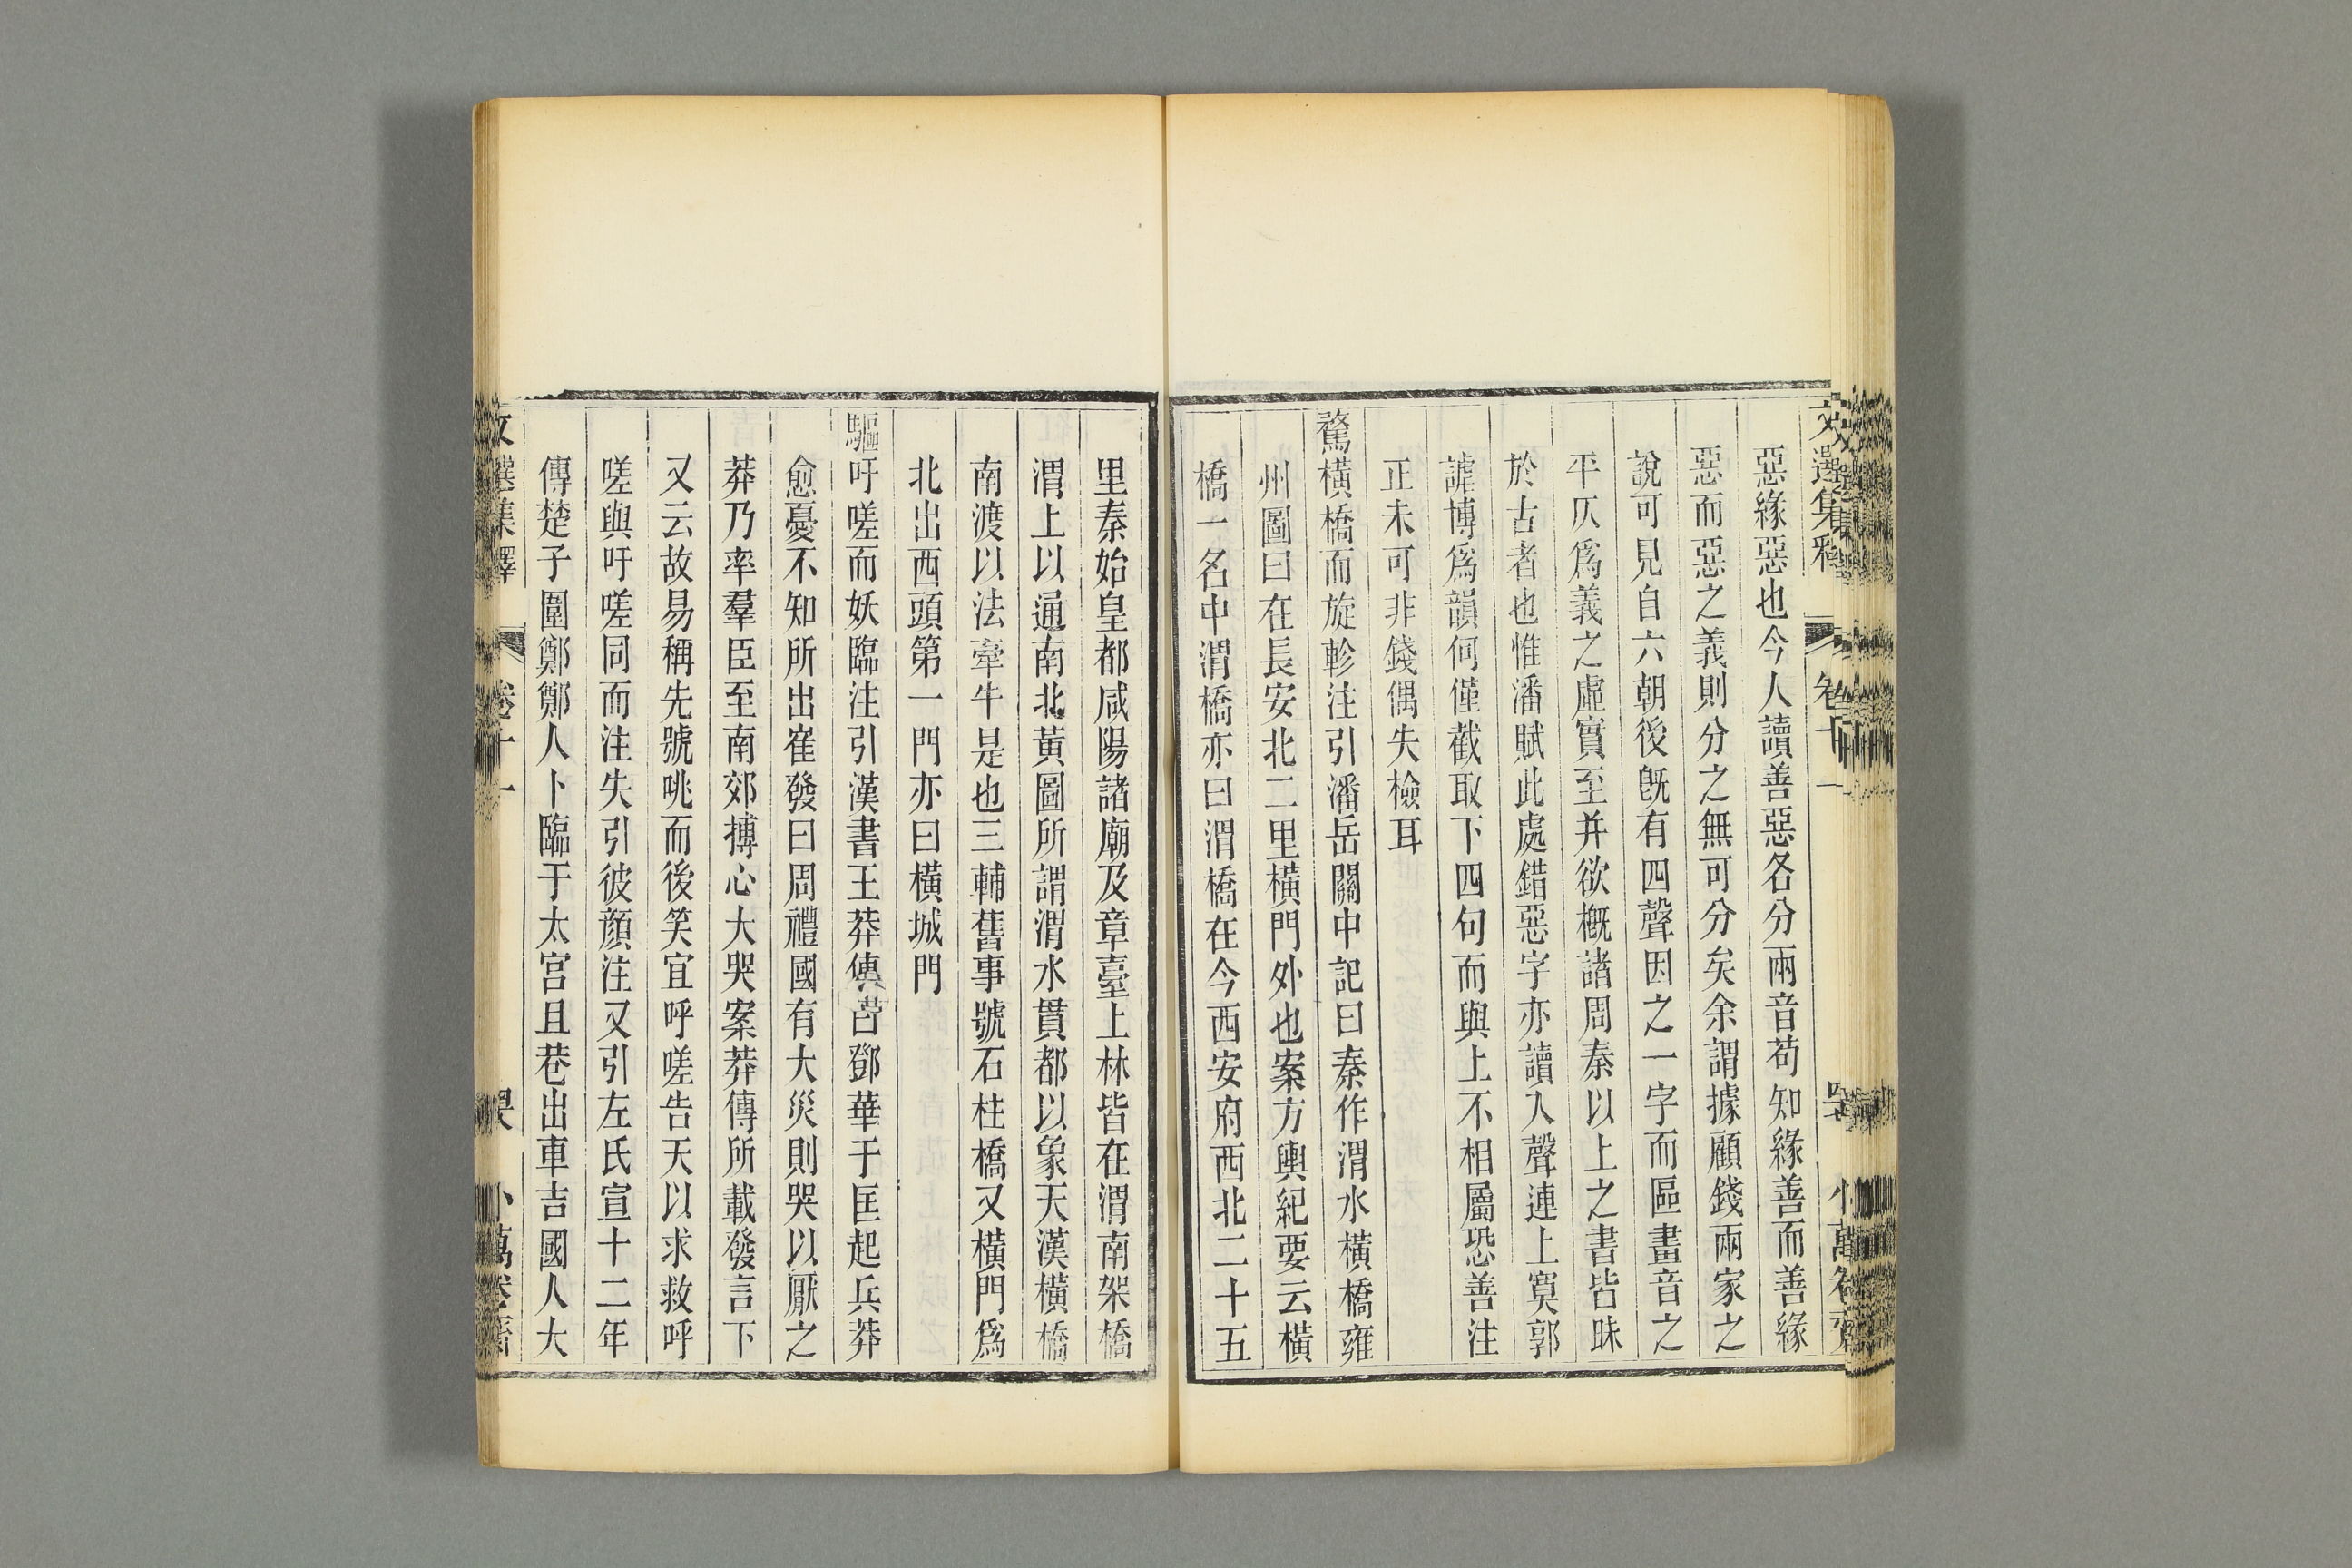 文選集釋 卷十一 小萬卷齋
惡緣惡也今人讀善惡各分兩音苟知緣善而善緣
惡而惡之義則分之無可分矣余謂據顧錢兩家之
說可見自六朝後旣有四聲因之一字而區畫音之
平仄爲義之虛實至并欲槪諸周秦以上之書皆昧
於古者也惟潘賦此處錯惡字亦讀入聲連上寞郭
謔博爲韻何僅截取下四句而與上不相屬恐善注
正未可非錢偶失檢耳
騖橫橋而旋軫注引潘岳關中記曰秦作渭水橫橋雍
州圖曰在長安北二里橫門外也案方輿紀要云橫
橋一名中渭橋亦曰渭橋在今西安府西北二十五
里秦始皇都咸陽諸廟及章臺上林皆在渭南架橋
渭上以通南北黃圖所謂渭水貫都以象天漢橫橋
南渡以法牽牛是也三輔舊事號石柱橋又橫門爲
北出西頭第一門亦曰橫城門
驅吁嗟而妖臨注引漢書王莽傳莒鄧華于匡起兵莽
愈憂不知所出崔發曰周禮國有大災則哭以厭之
莽乃率羣臣至南郊摶心大哭案莽傳所載發言下
又云故易稱先號咷而後笑宜呼嗟告天以求救呼
嗟與吁嗟同而注失引彼顏注又引左氏宣十二年
傳楚子圍鄭鄭人卜臨于太宮且巷出車吉國人大
文選集釋 卷十一 小萬卷齋